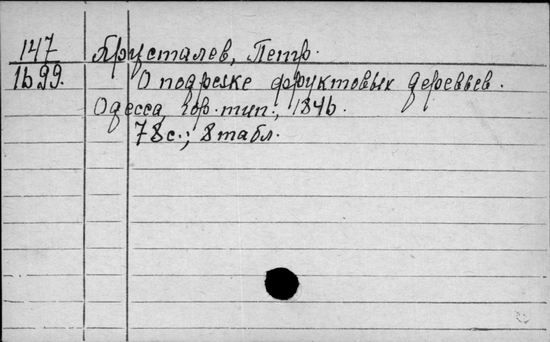 147 Хрусталев, Петр.
1699. О подрезке фруктовых деревьев.
Одесса, гор. тип., 1846.
78 с.; 8 табл.